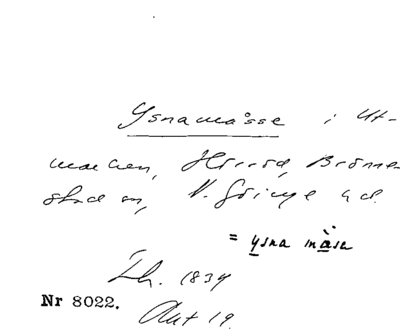 Ysnamåsse i Ut-
marken, Hörröd, Brönne-
stad sn, V. Göinge hd.
= ysna måsa
Lh. 1834
Nr 8022.
Akt 19.